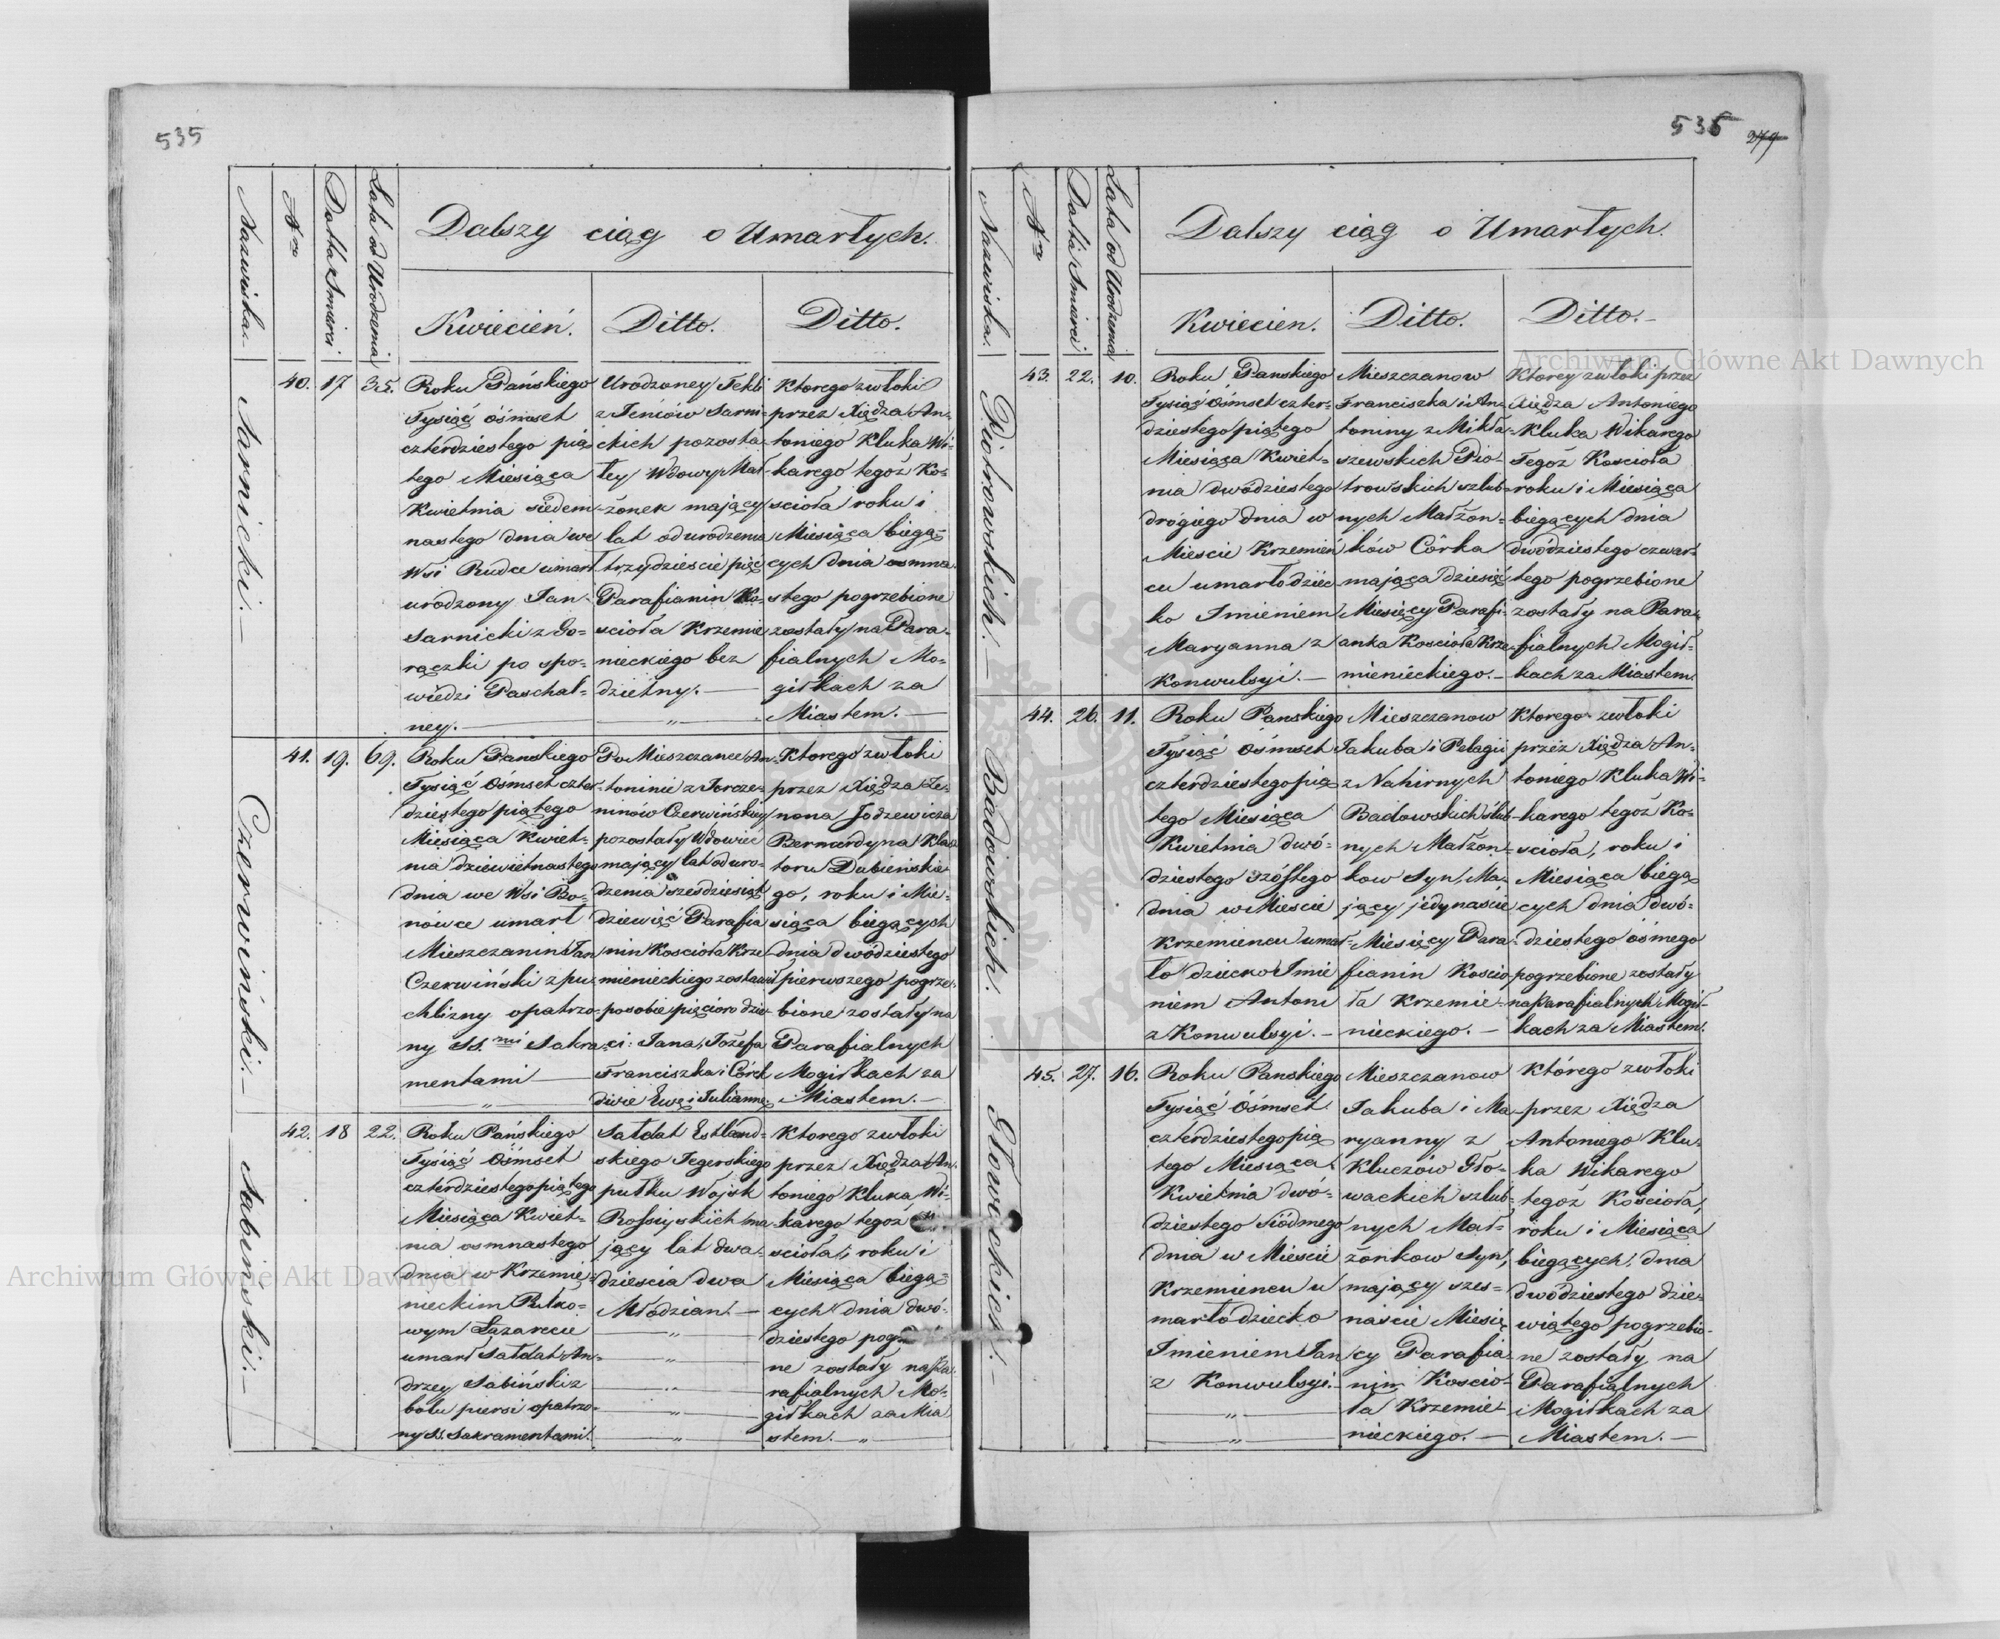 535
Nazwiska.
Nro
Datta Smierci
Lata od Urodzenia
Dalszy ciąg o Umarłych.
Kwiecień.
Ditto.
Ditto.
Sarnicki.
40.
17
35.
Roku Pańskiego
Tysiąć Ośmset
czterdziestego pią
tego Miesiąca
Kwietnia siedem
nastego dnia we
Wsi Rudce umarł
urodzony Jan
Sarnicki z Go-
rączki po spo-
wiedzi Paschal-
ney.
Urodzoney Tekli
z Jeniów Sarni-
ckich pozosta
łey Wdowy Mał-
żonek mający
lat od urodzenia
trzydziescie pięć
Parafianin Ko-
scioła Krzemie
nieckiego bez
dzietny.
Ktorego zwłoki
przez Xiędza An-
toniego Kluka Wi-
karego tegoż Ko-
scioła roku i
Miesiąca biegą-
cych dnia osmna
stego pogrzebione
zostały na Para-
fialnych Mo-
giłkach za
Miastem.
Czerwiński.
41.
19.
69.
Roku Panskiego
Tysiąć Ośmset czter-
dziestego piątego
Miesiąca Kwiet-
nia dziewietnastego
dnia we Wsi Bo-
nówce umarł
Mieszczanin Jan
Czerwiński z pu-
chlizny opatrzo-
ny SS.mi Sakra-
mentami
Po Mieszczance An-
toninie z Torcze-
ninów Czerwińskiey
pozostały Wdowiec
mający lat od uro-
dzenia szesdziesiąt
dziewięć Parafia
nin Koscioła Krze-
mienieckiego zostawił
po sobie pięcioro dzie-
ci: Jana, Józefa
Franciszka i Córek
dwie Ewę i Juliannę.
Ktorego zwłoki
przez Xiędza Ze-
nona Jodzewicza
Bernardyna Klasz
toru Dubieńskie-
go, roku i Mie-
siąca biegących
dnia dwodziestego
pierwszego pogrze-
bione zostały na
Parafialnych
Mogiłkach za
Miastem.
Sabiński.
42.
18
22.
Roku Pańskiego
Tysiąć Ośmset
czterdziestego piątego
Miesiąca Kwiet-
nia osmnastego
dnia w Krzemie-
nieckim Pułko-
wym Lazarecie
umarł Sałdat An-
drzey Sabiński z
bolu piersi opatrzo-
ny SS. Sakramentami.
Sałdat Estland-
skiego Jegerskiego
pułku Wojsk
Rossyiskich ma-
jący lat dwa-
dziescia dwa
Młodzian.
Ktorego zwłoki
przez Xiędza An-
toniego Kluka Wi-
karego tegoż
scioła, roku i
Miesiąca biegą-
cych dnia dwó-
dziestego
ne zostały na Pa-
rafialnych Mo-
giłkach za Mia
stem.
536
279
Nazwiska.
Nro
Datta Smierci
Lata od Urodzenia
Dalszy ciąg o Umarłych.
Kwiecien.
Ditto.
Ditto.
Piotrowskich.
43.
22.
10.
Roku Panskiego
Tysiąć Ośmset czter-
dziestego piątego
Miesiąca Kwiet-
nia dwódziestego
drógiego dnia w
Miescie Krzemień
cu umarło dziec
ko Imieniem
Maryanna z
Konwulsyi.
Mieszczanow
Franciszka i An-
toniny z Mikła-
szewskich Pio-
trowskich szlub-
nych Małżon-
ków Córka
mająca dziesięć
Miesięcy Parafi-
anka Koscioła Krze-
mienieckiego.
Ktorey zwłoki przez
Xiędza Antoniego
Kluka Wikarego
Tegoż Koscioła
roku i Miesiąca
biegących dnia
dwódziestego czwar-
tego pogrzebione
zostały na Para-
fialnych Mogił-
kach za Miastem.
Badowskich.
44.
26.
11.
Roku Panskiego
Tysiąć Ośmset
czterdziestego pią
tego Miesiąca
Kwietnia dwó-
dziestego szóstego
dnia w Miescie
Krzemiencu umar-
ło dziecko Imie
niem Antoni
z Konwulsyi.
Mieszczanow
Jakuba i Pelagii
z Nahirnych
Badowskich ślub-
nych Małżon-
kow Syn, Ma-
jący jedynascie
Miesięcy Para-
fianin Koscio-
ła Krzemie-
nieckiego.
Ktorego zwłoki
przez Xiędza An-
toniego Kluka Wi-
karego tegoż Ko-
scioła, roku i
Miesiąca biegą
cych dnia dwó-
dziestego ósmego
pogrzebione zostały
na Parafialnych Mogił-
kach za Miastem.
Głowackich.
45.
27.
16.
Roku Panskiego
Tysiąć Ośmset
czterdziestego pią
tego Miesiąca
Kwietnia dwó-
dziestego Siódmego
dnia w Miescie
Krzemiencu u
marło dziecko
Imieniem Jan
z Konwulsyi.
Mieszczanow
Jakuba i Ma-
ryanny z
Kluczów Gło-
wackich szlub-
nych Mał-
żonkow Syn,
mający szes-
nascie Miesię
cy Parafia-
nin Koscio-
ła Krzemie-
nieckiego.
Którego zwłoki
przez Xiędza
Antoniego Klu-
ka Wikarego
tegoż Kościoła,
roku i Miesiąca
biegących, dnia
dwódziestego dzie-
wiątego pogrzebio-
ne zostały na
Parafialnych
Mogiłkach za
Miastem.
Archiwum Główne Akt Dawnych
Archiwum Główne Akt Dawnych